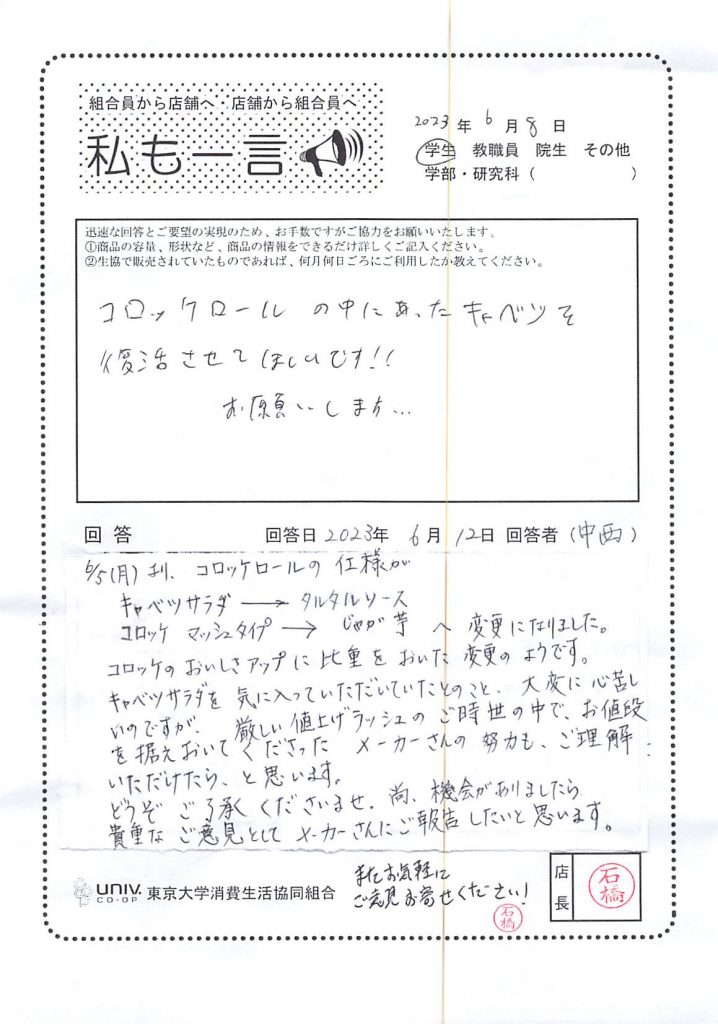 組合員から店舗へ・店舗から組合員へ
私も一言
2023年 6月 8日
学生 教職員 院生 その他
学部・研究科( )
迅速な回答とご要望の実現のため、お手数ですがご協力をお願いいたします。
①商品の容量、形状など、商品の情報をできるだけ詳しくご記入ください。
②生協で販売されていたものであれば、何月何日ごろにご利用したか教えてください。
コロッケロールの中にあったキャベツを
復活させてほしいです!!
お願いします…
回答 回答日 2023年 6月 12日 回答者(中西)
6/5(月)より、コロッケロールの仕様が
キャベツサラダ → タルタルソース
コロッケ マッシュタイプ → じゃが芋 へ 変更になりました。
コロッケのおいしさアップに比重をおいた変更のようです。
キャベツサラダを気に入っていただいていたとのこと、大変に心苦し
いのですが、厳しい値上げラッシュのご時世の中で、お値段
を据えおいてくださった メーカーさんの努力も、ご理解
いただけたら、と思います。
どうぞ ご了承くださいませ。尚、機会がありましたら
貴重なご意見としてメーカーさんにご報告したいと思います。
またお気軽に
ご意見お寄せください!
UNIV. CO-OP 東京大学消費生活協同組合
店長 石橋
石橋